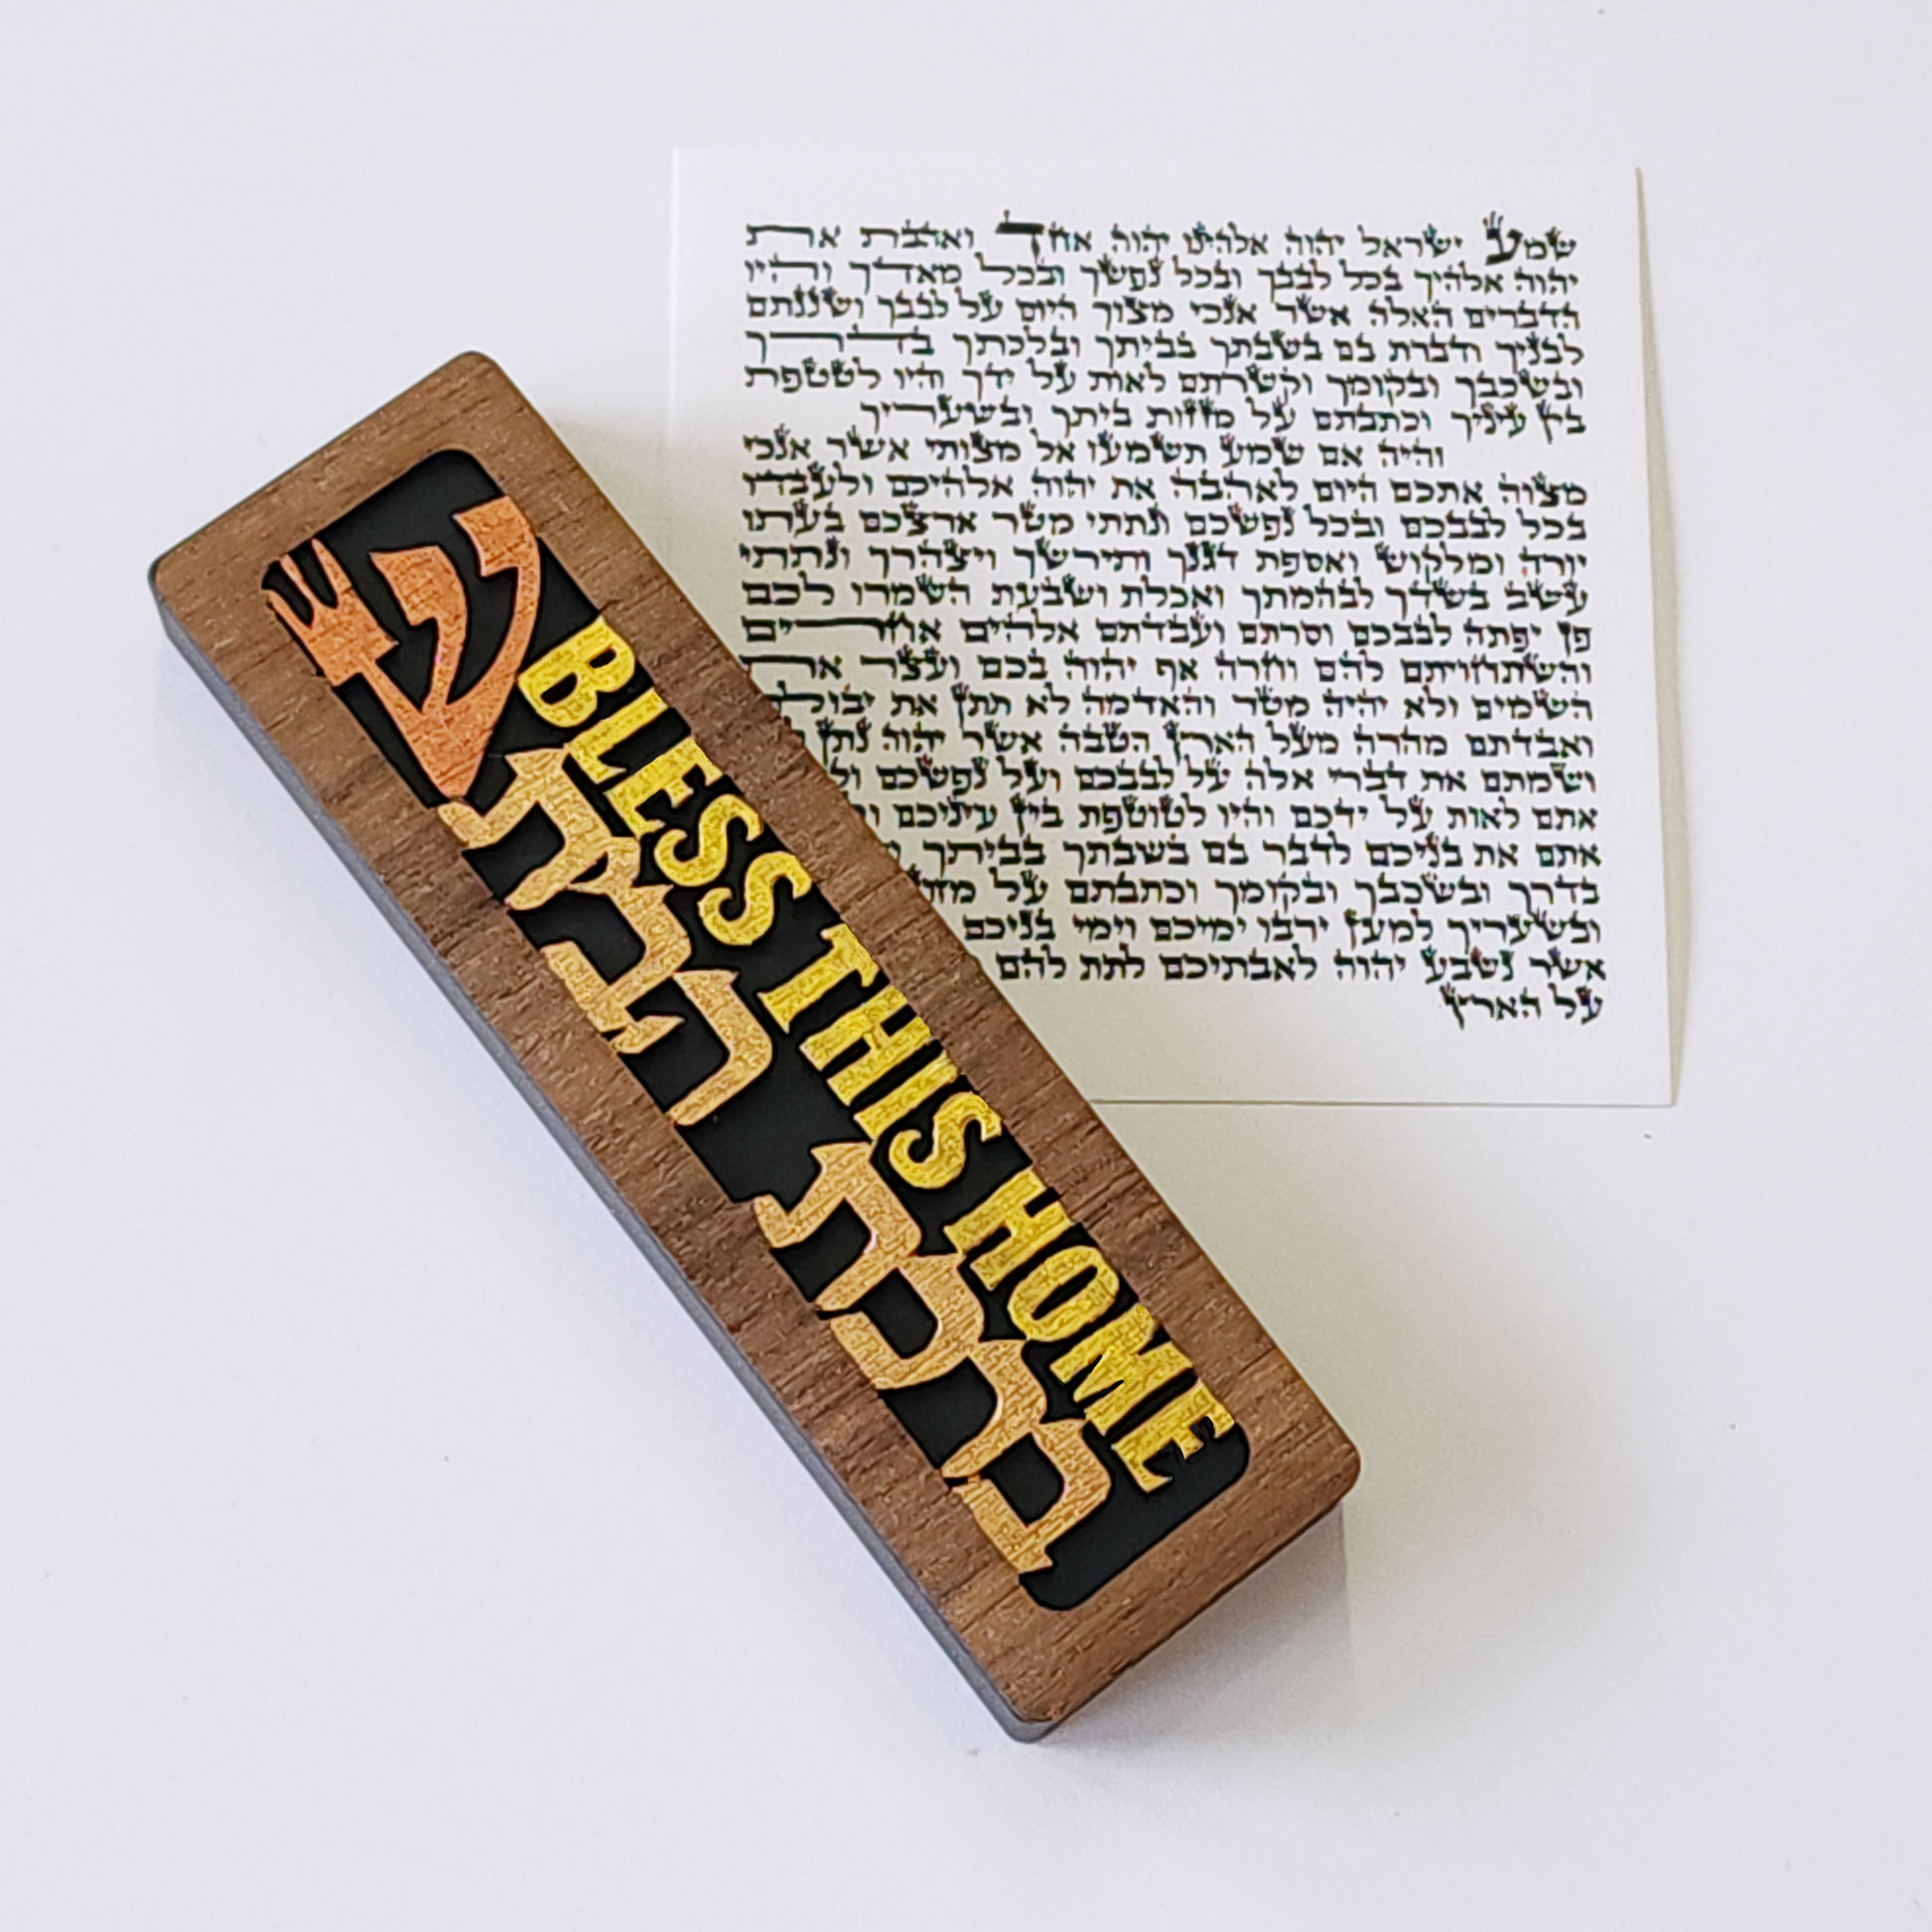 שמע ישראל יהוה אלהינו יהוה אחד ואהבת את
יהוה אלהיך בכל לבבך ובכל נפשך ובכל מאדך והיו
הדברים האלה אשר אנכי מצוך היום על לבבך ושננתם
לבניך ודברת בם בשבתך בביתך ובלכתך בדרך
ובשכבך ובקומך וקשרתם לאות על ידך והיו לטטפת
בין עיניך וכתבתם על מזזות ביתך ובשעריך
והיה אם שמע תשמעו אל מצותי אשר אנכי
מצוה אתכם היום לאהבה את יהוה אלהיכם ולעבדו
בכל לבבכם ובכל נפשכם ונתתי מטר ארצכם בעתו
יורה ומלקוש ואספת דגנך ותירשך ויצהרך ונתתי
עשב בשדך לבהמתך ואכלת ושבעת השמרו לכם
פן יפתה לבבכם וסרתם ועבדתם אלהים אחרים
והשתחויתם להם וחרה אף יהוה בכם ועצר את
השמים ולא יהיה מטר והאדמה לא תתן את יבולה
ואבדתם מהרה מעל הארץ הטבה אשר יהוה נתן
ושמתם את דברי אלה על לבבכם ועל נפשכם
אתם לאות על ידכם והיו לטוטפת בין עיניכם
אתם את בניכם לדבר בם בשבתך בביתך
בדרך ובשכבך ובקומך וכתבתם על
ובשעריך למען ירבו ימיכם וימי בניכם
אשר נשבע יהוה לאבתיכם לתת להם
על הארץ
ש
BLESS THIS HOME
ברכת הבית